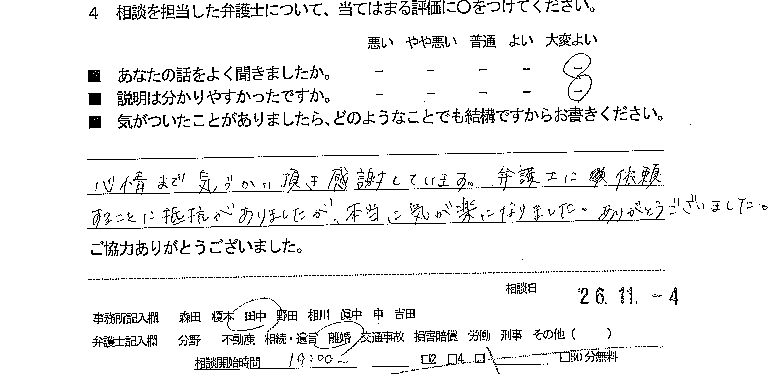 4 相談を担当した弁護士について、当てはまる評価に○をつけてください。
悪い やや悪い 普通 よい 大変よい
■ あなたの話をよく聞きましたか。 − − − − −
■ 説明は分かりやすかったですか。 − − − − −
■ 気がついたことがありましたら、どのようなことでも結構ですからお書きください。
心情まで気づかい頂き感謝しています。弁護士に依頼
することに抵抗がありましたが、本当に気が楽になりました。ありがとうございました。
ご協力ありがとうございました。
相談日 26.11.-4
事務所記入欄 森田 榎木 田中 野田 相川 田中 申 吉田
弁護士記入欄 分野 不動産 相続・遺言 離婚 交通事故 損害賠償 労働 刑事 その他( )
相談開始時間 19:00~ □2 □4 □ □30分無料